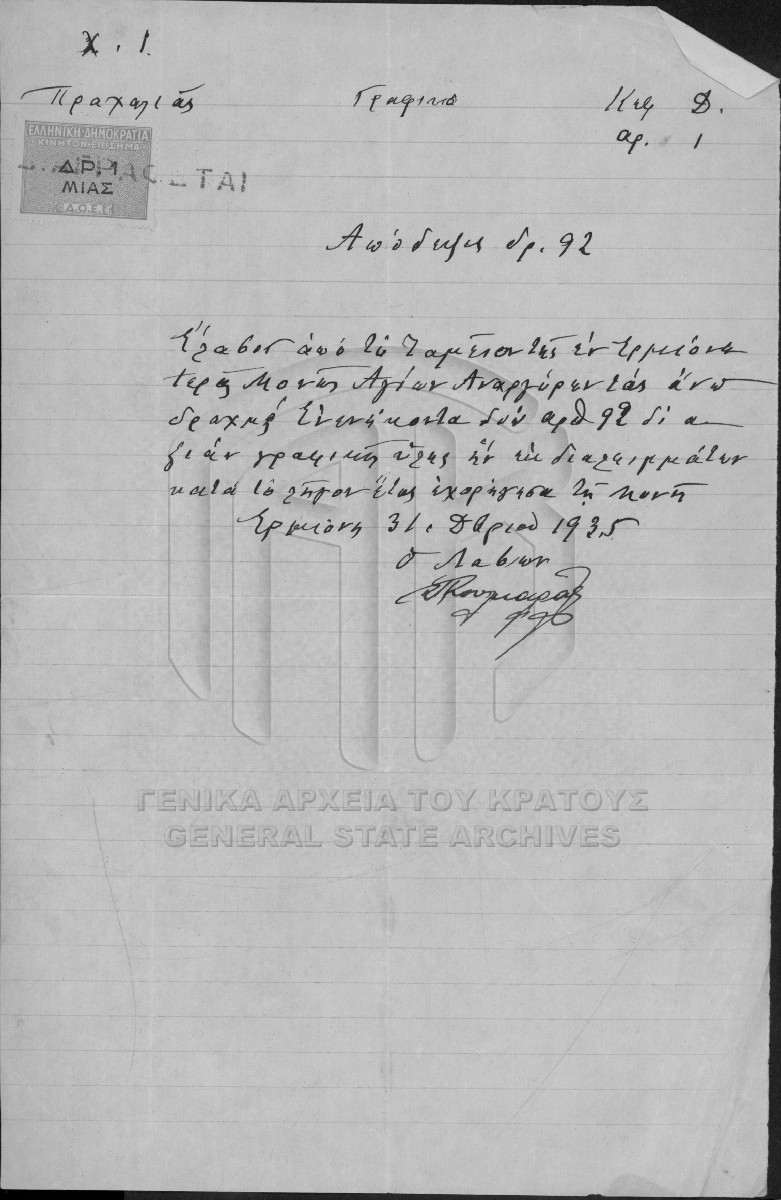 Χ. 1.
Πραχαλιάς Γραφικά Κεφ Δ.
αρ. 1
ΕΛΛΗΝΙΚΗ ΔΗΜΟΚΡΑΤΙΑ
ΚΙΝΗΤΟΝ ΕΠΙΣΗΜΑ
ΔΡ. 1
ΜΙΑΣ
Δ.Ο.Ε.
ΤΑΙ
Απόδειξις δρ. 92
Έλαβον από το Ταμείον της εν Ερμιόνη
Ιεράς Μονής Αγίων Αναργύρων τάς άνω
δραχμάς Ενενήκοντα δύο αρθ 92 δι α
ξίαν γραφικής ύλης ήν εκ διαλειμμάτων
κατα το λήγον έτος εχορήγησα τη Μονή
Ερμιόνη 31. Δβρίου 1935
Ο Λαβων
ΓΕΝΙΚΑ ΑΡΧΕΙΑ ΤΟΥ ΚΡΑΤΟΥΣ
GENERAL STATE ARCHIVES